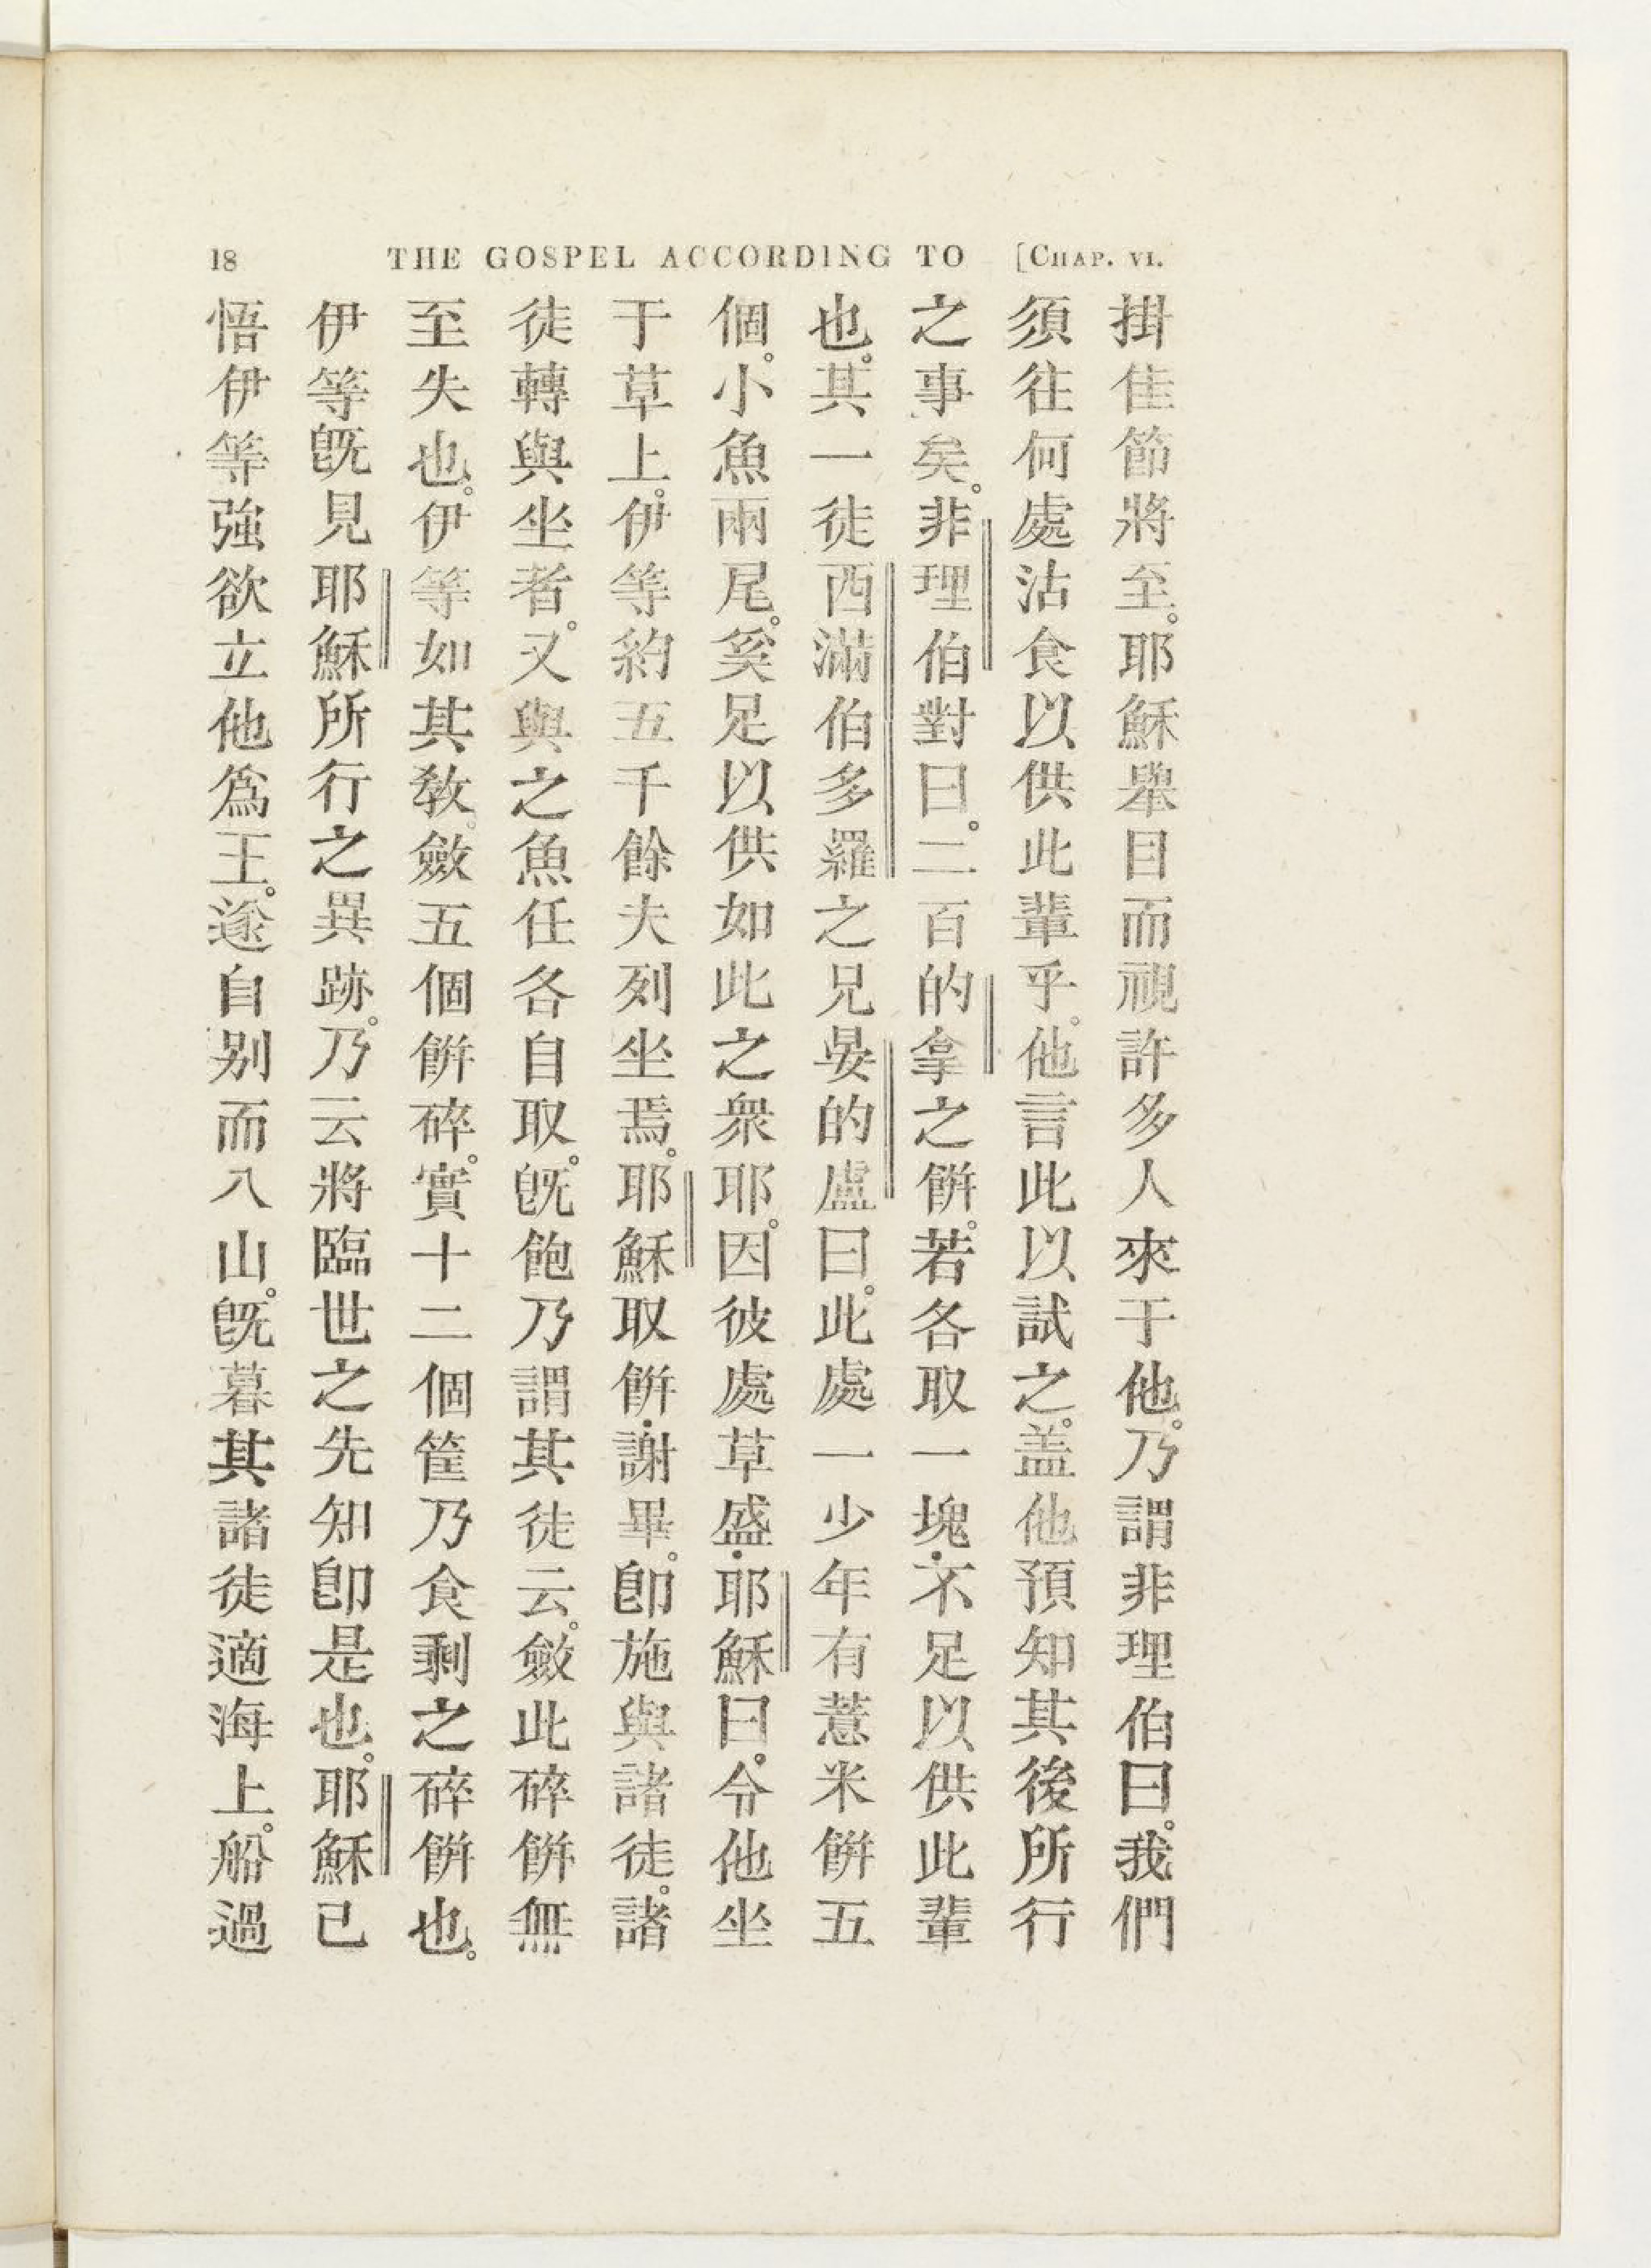 18 THE GOSPEL ACCORDING TO [CHAP. VI.
掛佳節將至。耶穌舉目而視許多人來于他。乃謂非理伯曰。我們
須往何處沽食以供此輩乎。他言此以試之。盖他預知其後所行
之事矣。非理伯對曰。二百的拿之餅。若各取一塊・不足以供此輩
也。其一徒西滿伯多羅之兄晏的盧曰。此處一少年有薏米餅五
個。小魚兩尾。奚足以供如此之衆耶。因彼處草盛・耶穌曰。令他坐
于草上。伊等約五千餘夫列坐焉。耶穌取餅・謝畢。卽施與諸徒。諸
徒轉與坐者。又與之魚任各自取。旣飽乃謂其徒云。斂此碎餅無
至失也。伊等如其教。斂五個餅碎。實十二個筐乃食剩之碎餅也。
伊等旣見耶穌所行之異跡。乃云將臨世之先知卽是也。耶穌已
悟伊等強欲立他爲王。遂自别而入山。旣暮其諸徒適海上。船過